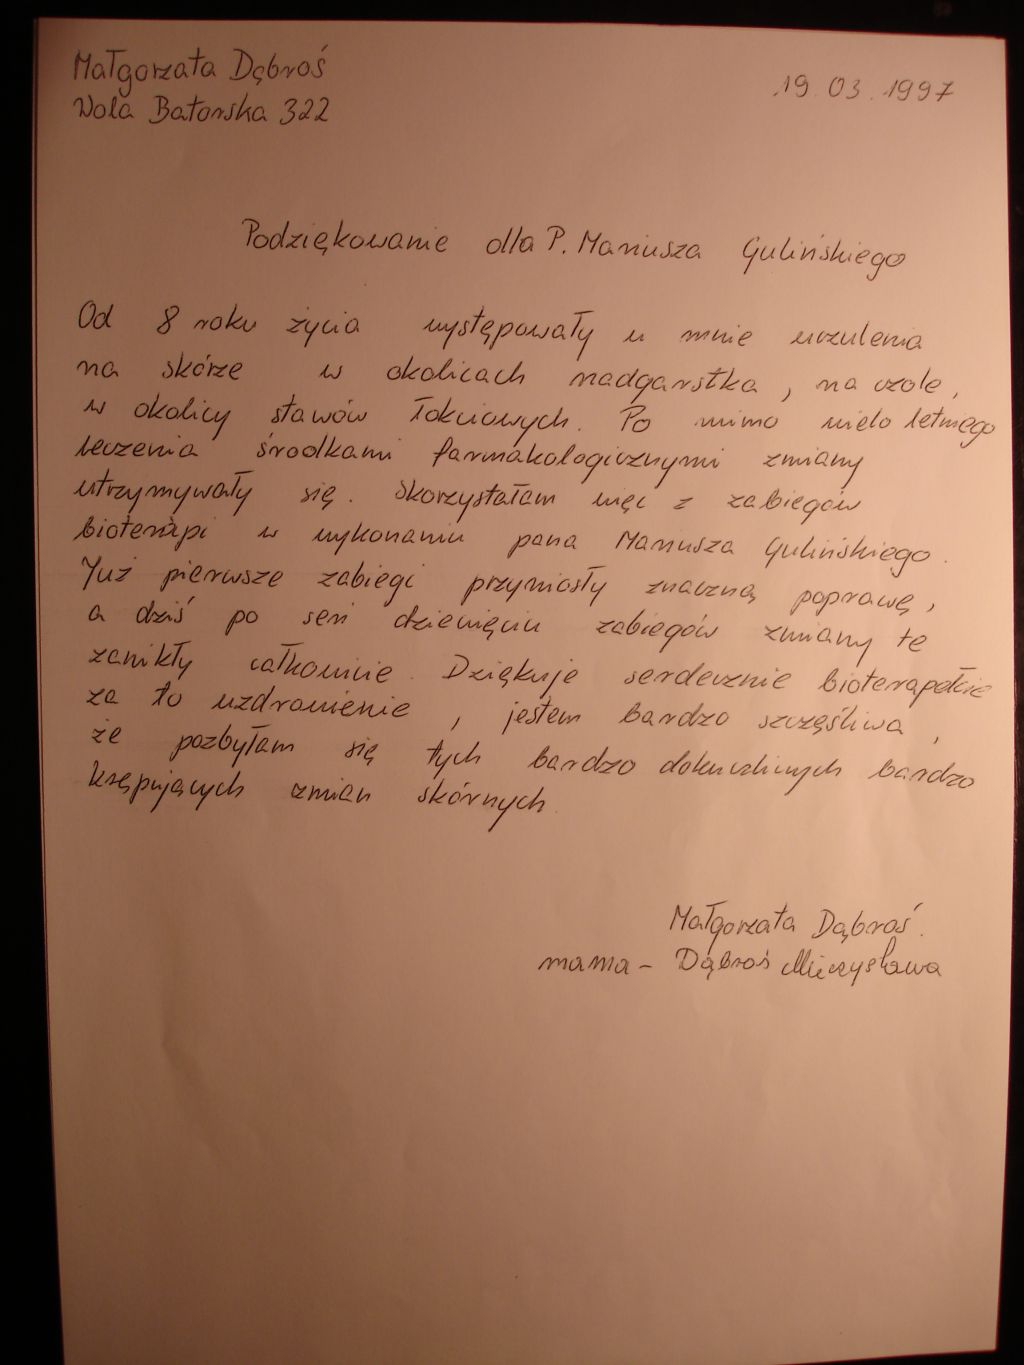 Małgorzata Dąbroś
19.03.1997
Wola Batorska 322
Podziękowanie dla P. Mariusza Gulińskiego
Od 8 roku życia występowały u mnie uczulenia
na skórze w okolicach nadgarstka, na czole,
w okolicy stawów łokciowych. Po mimo wielo letniego
leczenia środkami farmakologicznymi zmiany
utrzymywały się. Skorzystałam więc z zabiegów
bioterapi w wykonaniu pana Mariusza Gulińskiego.
Już pierwsze zabiegi przyniosły znaczną poprawę,
a dziś po seri dziewięciu zabiegów zmiany te
zanikły całkowicie. Dziękuje serdecznie bioterapełcie
za to uzdrowienie, jestem bardzo szczęśliwa,
że pozbyłam się tych bardzo dokuczliwych bardzo
krępujących zmian skórnych.
Małgorzata Dąbroś.
mama - Dąbroś Mieczysława